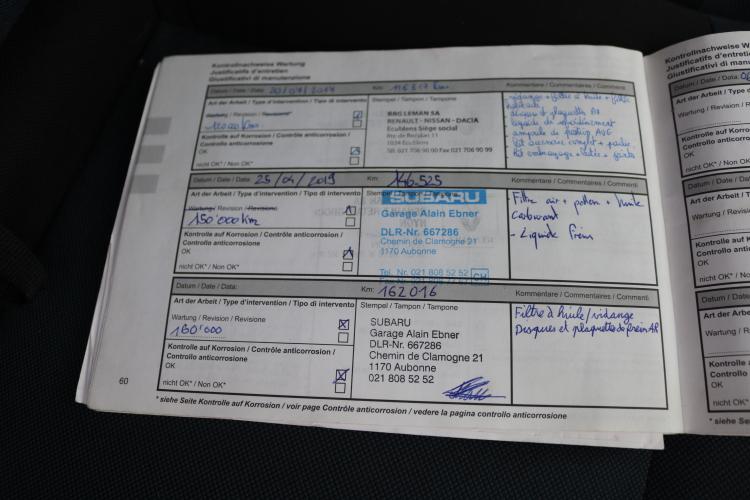 Kontrollnachweise Wartung
Justificatifs d'entretien
Giustificativi di manutenzione
Datum / Date / Data: 20/04/2014 Km: 116317 km
Kommentare / Commentaires / Commenti
Art der Arbeit / Type d'intervention / Tipo di intervento
Stempel / Tampon / Tampone
Wartung / Revision / Revisione
120000 km
Kontrolle auf Korrosion / Contrôle anticorrosion /
Controllo anticorrosione
OK
nicht OK* / Non OK*
BRELEMAN SA
RENAULT - NISSAN - DACIA
Ecublens Siège social
1024 Ecublens
Tél. 021 706 90 90 Fax 021 706 90 99
vidange + filtre à huile + filtre
habitacle
disques et plaquettes AR
liquide de refroidissement
Datum / Date / Data: 25/04/2019 Km: 146.525
Kommentare / Commentaires / Commenti
Art der Arbeit / Type d'intervention / Tipo di intervento
Stempel / Tampon / Tampone
Wartung / Revision / Revisione
150'000 km
Kontrolle auf Korrosion / Contrôle anticorrosion /
Controllo anticorrosione
OK
nicht OK* / Non OK*
SUBARU
Garage Alain Ebner
DLR-Nr. 667286
Chemin de Clamogne 21
1170 Aubonne
Tel. Nr. 021 808 52 52 CH
Filtre air + pollen + huile
Carburant
- Liquide frein
Datum / Date / Data: Km: 162016
Kommentare / Commentaires / Commenti
Art der Arbeit / Type d'intervention / Tipo di intervento
Stempel / Tampon / Tampone
Wartung / Revision / Revisione
160'000
Kontrolle auf Korrosion / Contrôle anticorrosion /
Controllo anticorrosione
OK
nicht OK* / Non OK*
SUBARU
Garage Alain Ebner
DLR-Nr. 667286
Chemin de Clamogne 21
1170 Aubonne
021 808 52 52
Filtre à huile/vidange
Disques et plaquettes de frein AR
60
* siehe Seite Kontrolle auf Korrosion / voir page Contrôle anticorrosion / vedere la pagina controllo anticorrosione
Kontrollnachweise W
Justificatifs d'entretien
Giustificativi di manu
Datum / Date / Data:
Art der Arbeit / Type
Wartung / Revision / R
Kontrolle auf
Controllo
OK
nicht OK* / Non OK*
Datum / Date
Art der Arbeit / T
Wartung / Revision
Kontrolle auf Ko
Controllo antico
OK
nicht OK* / Non
Datum / Date
Art der Arbei
Wartung / Rev
Kontrolle au
Controllo a
OK
nicht OK*
* siehe S